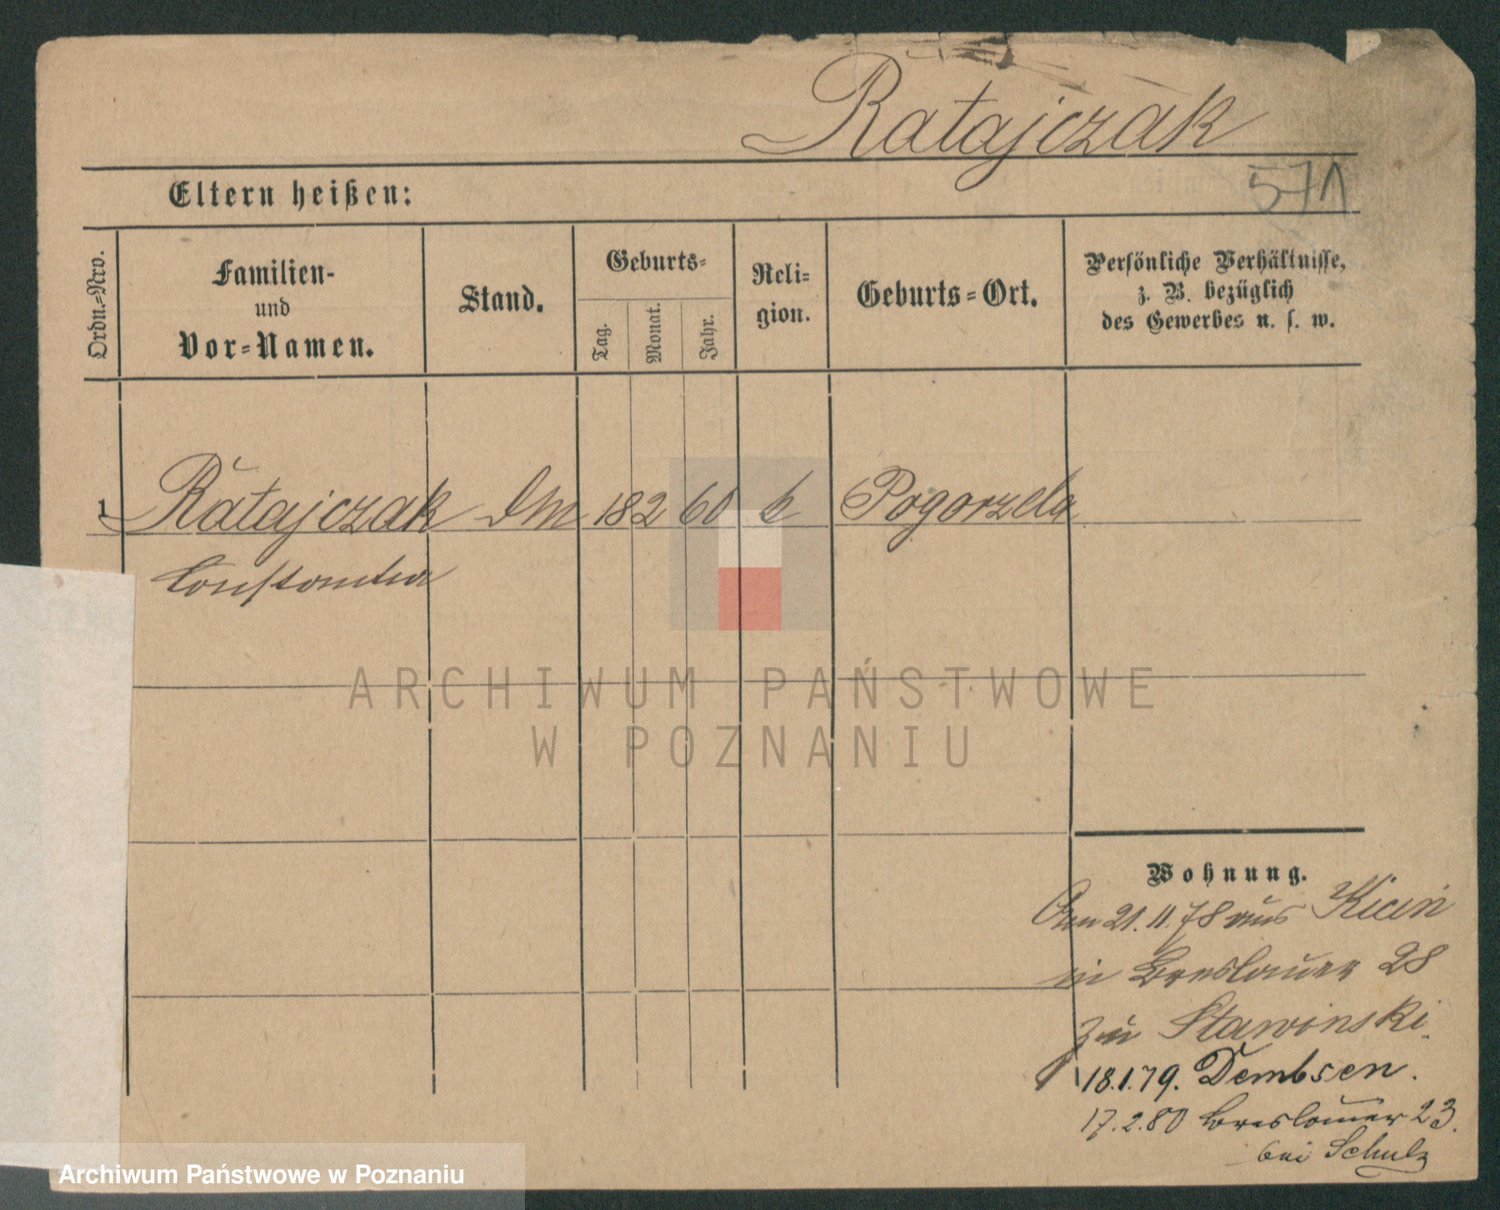 Ratajczak
571
Eltern heißen:
Ordn.=Nro.
Familien-
und
Vor=Namen.
Stand.
Geburts=
Tag.
Monat.
Jahr.
Reli=
gion.
Geburts=Ort.
Persönliche Verhältnisse,
z. B. bezüglich
des Gewerbes u. s. w.
1 Ratajczak 18 2 60 k Pogorzela
Constantia
ARCHIWUM PAŃSTWOWE
W POZNANIU
Wohnung.
21.11.78 aus Kicin
in Breslauer 28
zu Stawinski.
18.1.79. Dembsen.
17.2.80 Breslauer 23.
bei Schulz
Archiwum Państwowe w Poznaniu